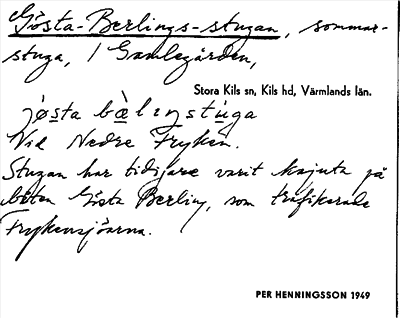 Gösta-Berlings-stugan, sommar-
stuga, / Gamlegården,
Stora Kils sn, Kils hd, Värmlands län.
jø̀sta bæ̀liŋstúga
Vid Nedre Fryken.
Stugan har tidigare varit kajuta på
båten Gösta Berling, som trafikerade
Frykensjöarna.
PER HENNINGSSON 1949